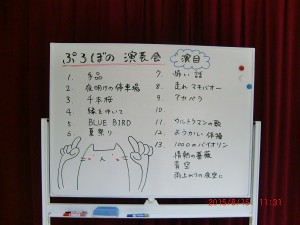 ぷろぼの 演芸会
演目
1. 手品
2. 夜明けの停車場
3. 千本桜
4. 縁を結いて
5. BLUE BIRD
6. 夏祭り
7. 怖い話
8. 走れマキバオー
9. アカペラ
10.
11. ウルトラマンの歌
12. ようかい体操
13. 1000のバイオリン
情熱の薔薇
青空
雨上がりの夜空に
2015/8/25 11:31